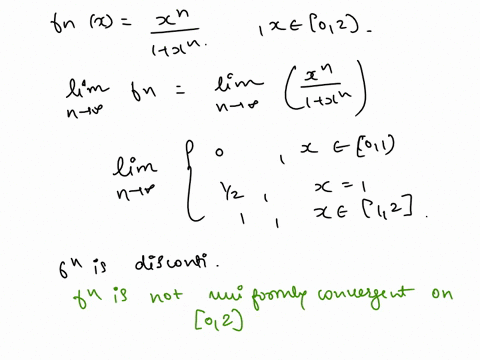 fn (x) = x^n / 1+x^n. , x ∈ [0,2).
lim n→∞ fn = lim n→∞ (x^n / 1+x^n)
lim n→∞ { 0 , x ∈ [0,1)
1/2 , x = 1
1 , x ∈ [1,2].
f^n is disconti.
f^n is not uniformly convergent on
[0,2)